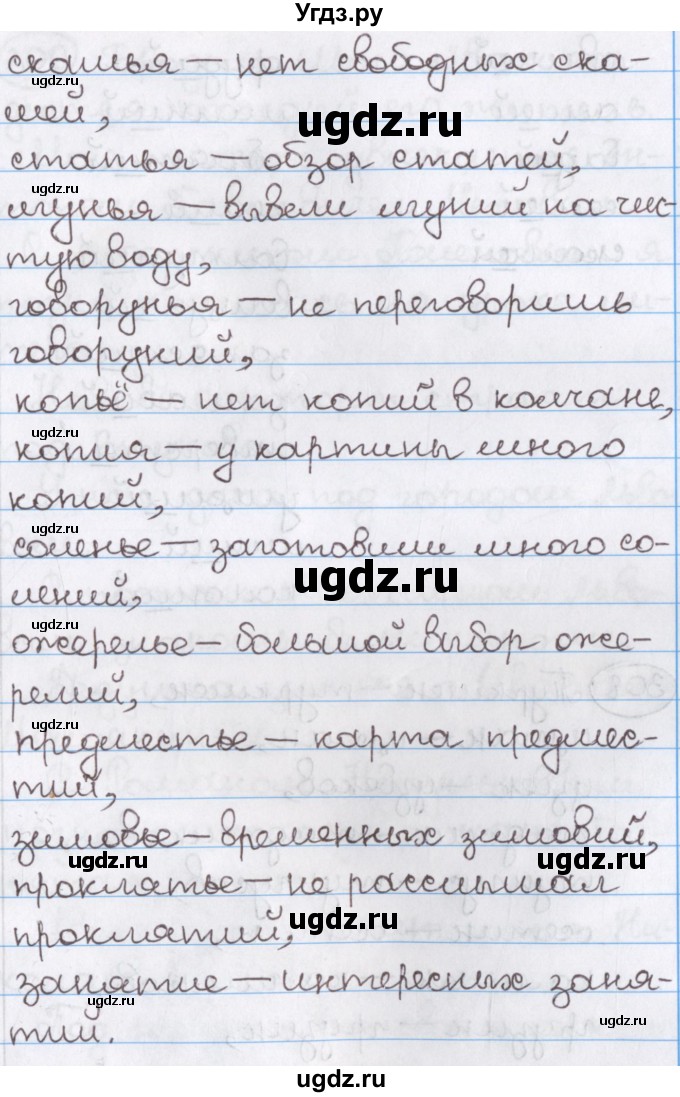 Угдз.ру
скамья — нет свободных ска-
мей,
ugdz.ru
статья — обзор статей,
ugdz.ru
лгунья — вывели лгуний на чис-
тую воду,
ugdz.ru
говорунья — не переговоришь
ugdz.ru
говоруний,
копьё — нет копий в колчане,
ugdz.ru
копия — у картины много
копий,
ugdz.ru
соленье — заготовили много со-
ugdz.ru
лений,
ожерелье — большой выбор оже-
релий,
ugdz.ru
предместье — карта предмес-
тий,
зимовье — временных зимовий,
ugdz.ru ugdz.ru
проклятье — не рассышал
ugdz.ru
проклятий,
занятие — интересных заня-
ugdz.ru
тий.
ugdz.ru
ugdz.ru